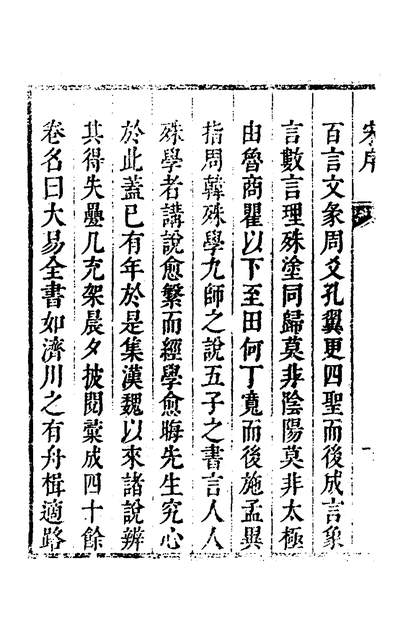 宋序
百言文象周爻孔翼更四聖而後成言象
言數言理殊塗同歸莫非陰陽莫非太極
由魯商瞿以下至田何丁寬而後施孟異
指周韓殊學九師之說五子之書言人人
殊學者講說愈繁而經學愈晦先生究心
於此蓋已有年於是集漢魏以來諸說辨
其得失疊几充架晨夕披閱藁成四十餘
卷名曰大易全書如濟川之有舟楫適路